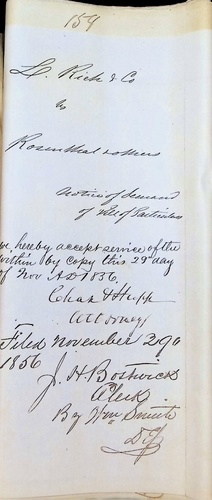 159
L. Rich & Co
vs
Rosenthal & others
Notice of demand
of bill of Particulars
we hereby accept service of the
within by copy this 29 day
of Nov AD 1856.
Chas
Attorney
Filed November 29th
1856
J. H. Bostwick
Clerk
By Wm Smith
Dpy